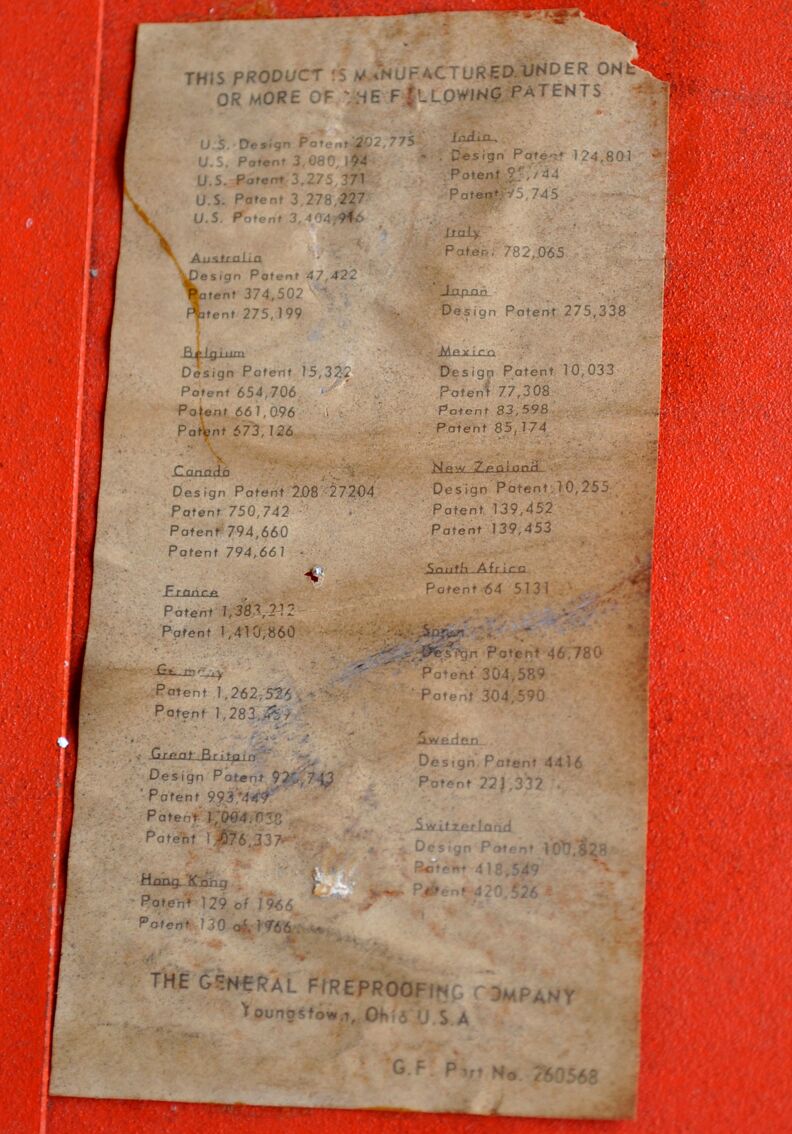 THIS PRODUCT IS MANUFACTURED UNDER ONE
OR MORE OF THE FOLLOWING PATENTS
U.S. Design Patent 202,775
U.S. Patent 3,080,194
U.S. Patent 3,275,371
U.S. Patent 3,278,227
U.S. Patent 3,404,916
Australia
Design Patent 47,422
Patent 374,502
Patent 275,199
Belgium
Design Patent 15,322
Patent 654,706
Patent 661,096
Patent 673,126
Canada
Design Patent 208 27204
Patent 750,742
Patent 794,660
Patent 794,661
France
Patent 1,383,212
Patent 1,410,860
Germany
Patent 1,262,526
Patent
Great Britain
Design Patent
Patent 993,449
Patent 1,004,038
Patent 1,076,337
Hong Kong
Patent 129 of 1966
Patent 130 of 1966
India
Design Patent 124,801
Patent
Patent
Italy
Patent 782,065
Japan
Design Patent 275,338
Mexico
Design Patent 10,033
Patent 77,308
Patent 83,598
Patent 85,174
New Zealand
Design Patent 10,255
Patent 139,452
Patent 139,453
South Africa
Patent 64 5131
Spain
Design Patent 46,780
Patent 304,589
Patent 304,590
Sweden
Design Patent 4416
Patent 221,332
Switzerland
Design Patent 100,828
Patent 418,549
Patent 420,526
THE GENERAL FIREPROOFING COMPANY
Youngstown, Ohio U.S.A
G.F. Part No. 260568